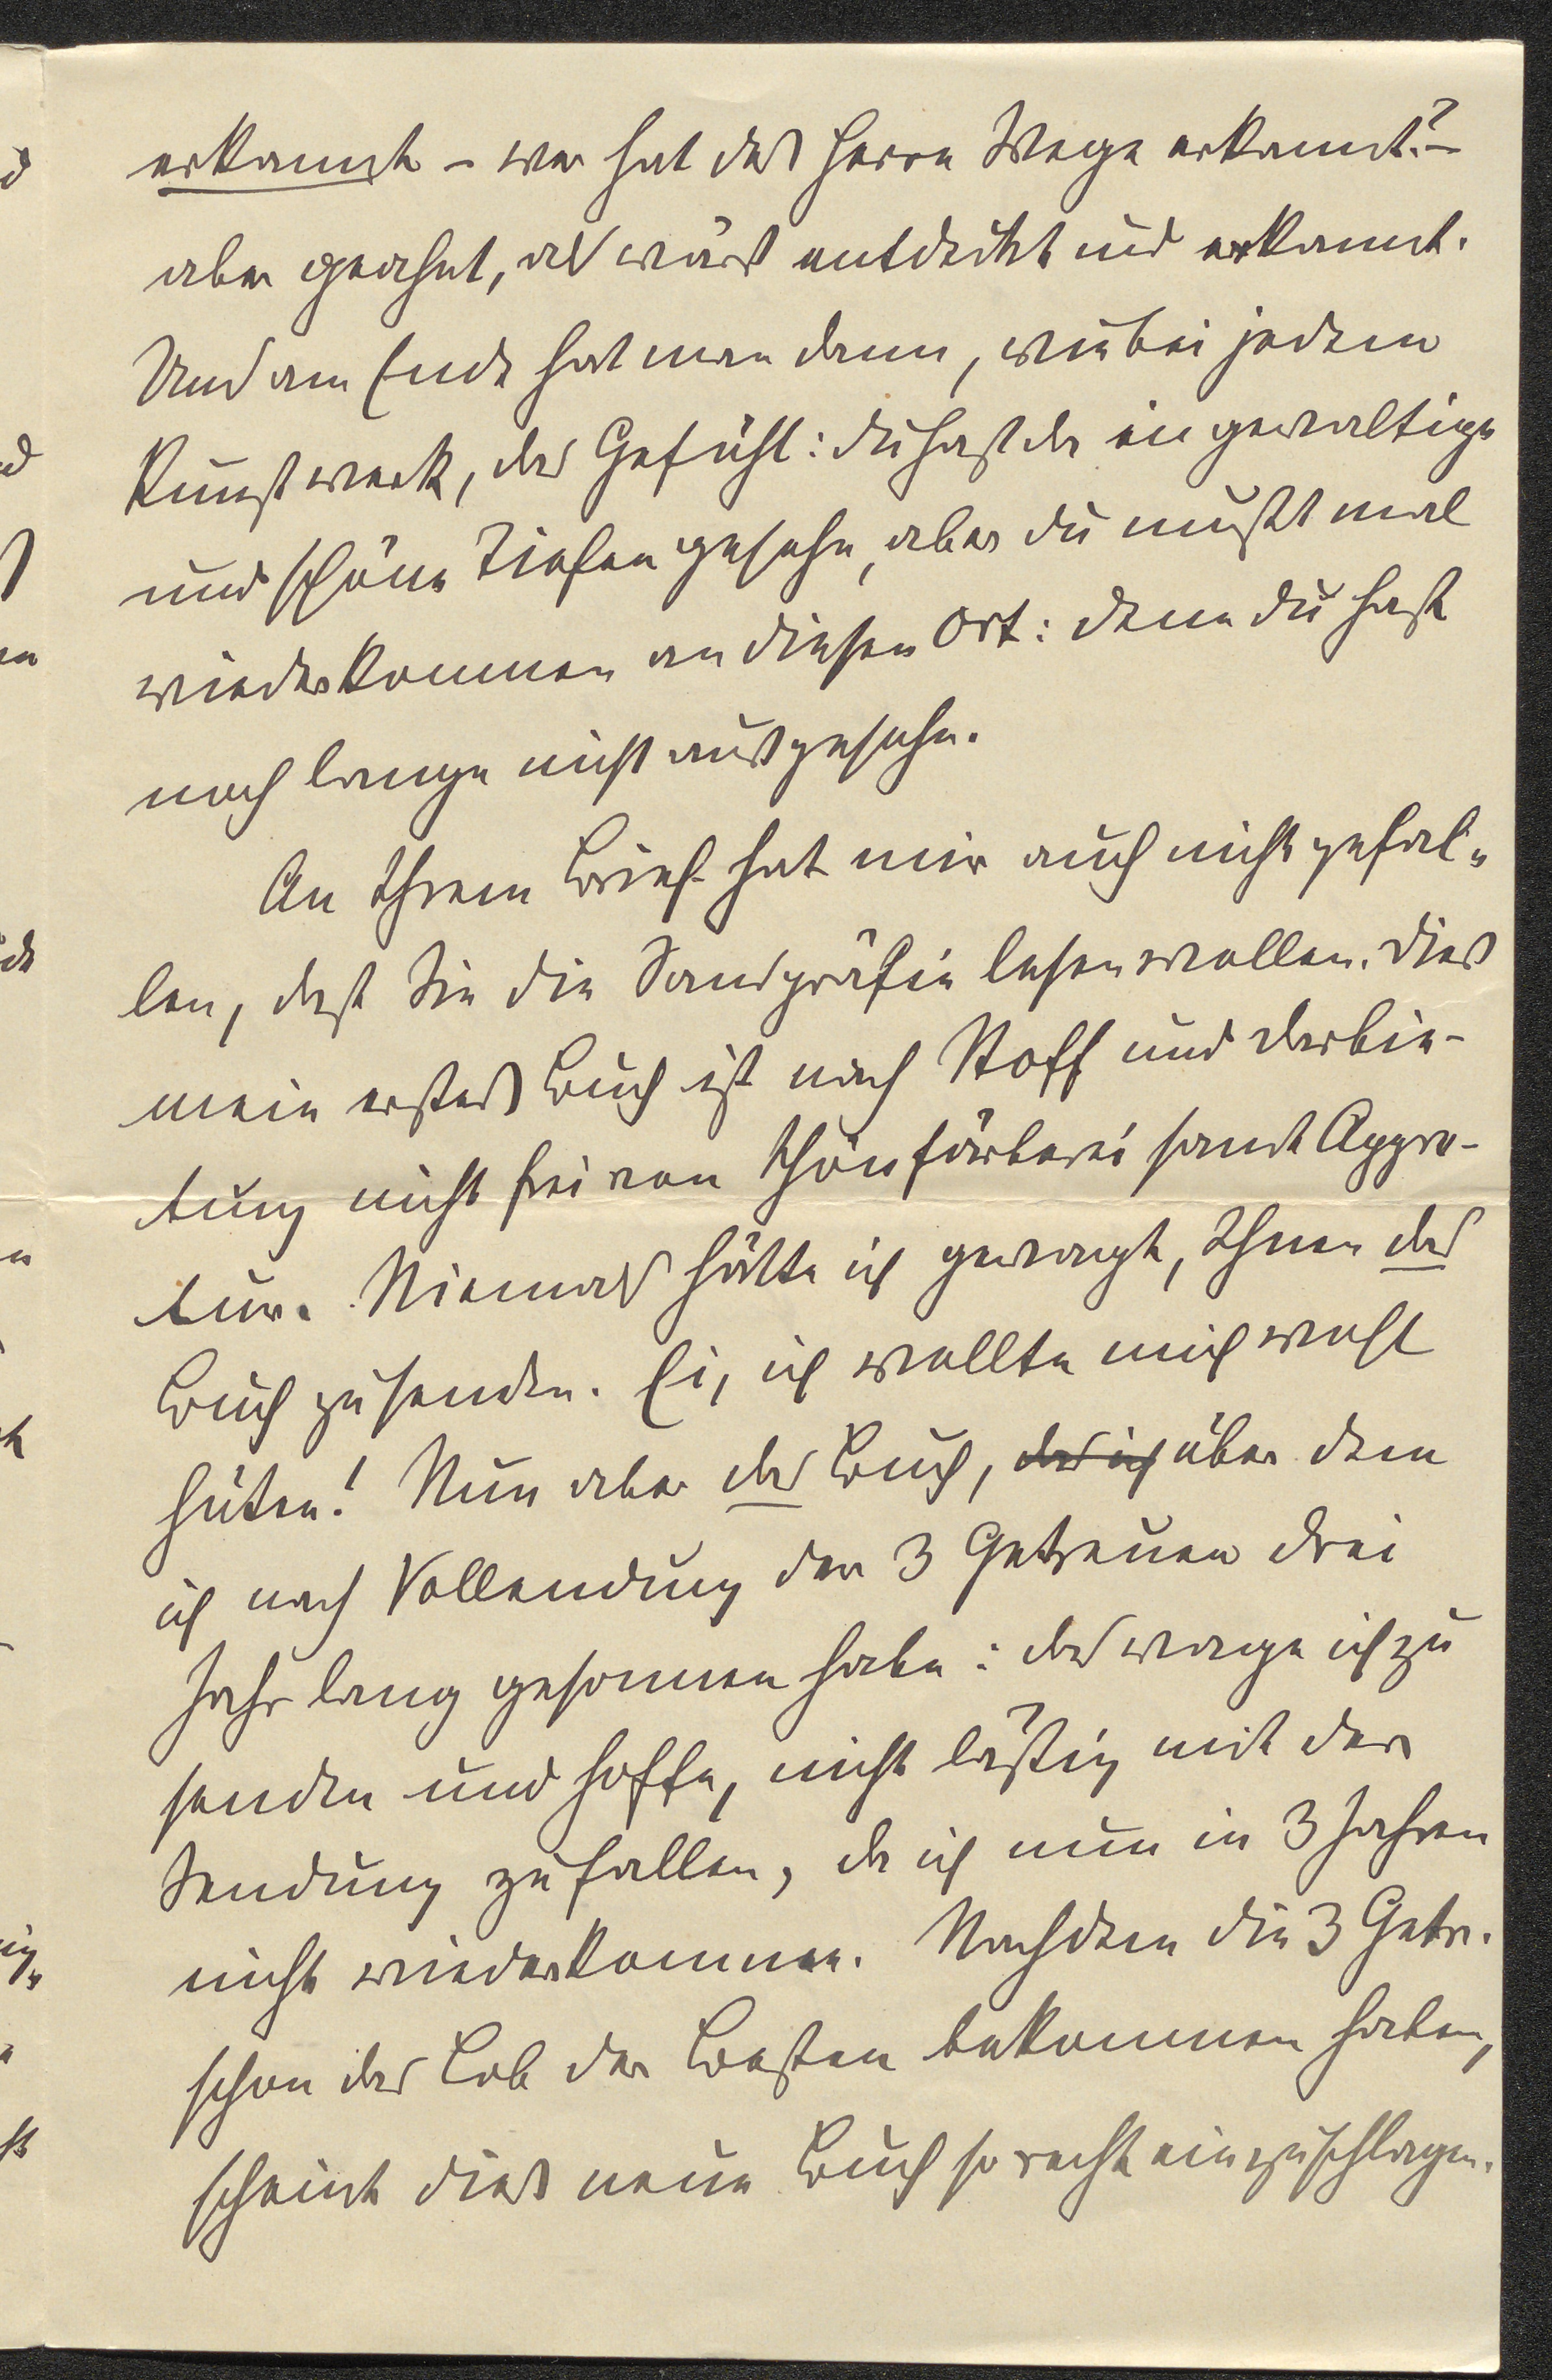 erkannt – wer hat des Herrn Wege erkannt? –
aber geahnt, als wärs entdeckt und erkannt.
Und am Ende hat man dann, wie bei jedem
Kunstwerk, das Gefühl: du hast da in gewaltige
und schöne Tiefen gesehn, aber du mußt mal
wiederkommen an diesen Ort: denn du hast
noch lange nicht ausgesehn.
An Ihrem Brief hat mir auch nicht gefal-
len, daß Sie die Sandgräfin lesen wollen. Dies
mein erstes Buch ist nach Stoff und Darbie-
tung nicht frei von Schönfärberei samt Appre-
tur. Niemals hätte ich gewagt, Ihnen das
Buch zu senden. Ei, ich wollte mich wohl
hüten! Nun aber das Buch, das ich über dem
ich nach Vollendung der 3 Getreuen drei
Jahr lang gesonnen habe: das wage ich zu
senden und hoffe, nicht lästig mit der
Sendung zu fallen, da ich nun in 3 Jahren
nicht wiederkomme. Nachdem die 3 Getr.
schon das Lob der Besten bekommen haben,
scheint dies neue Buch so recht einzuschlagen.